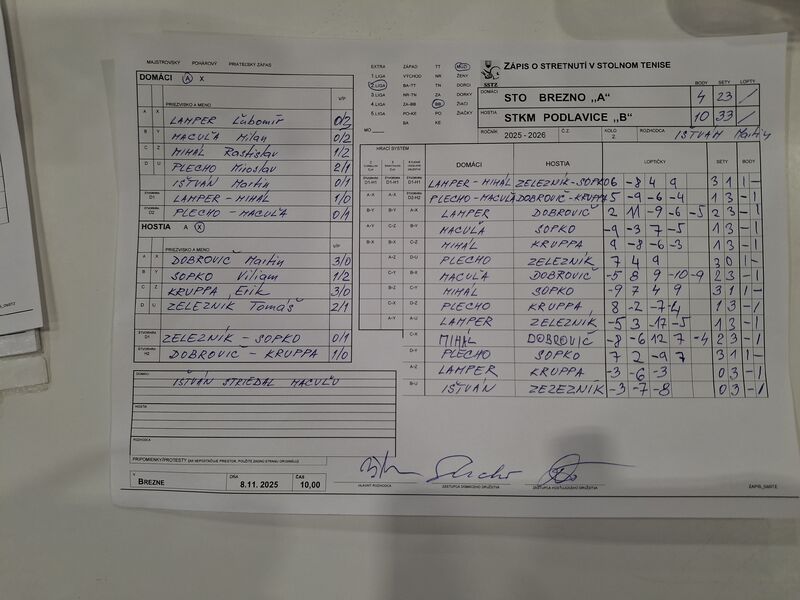 MAJSTROVSKÝ POHÁROVÝ PRIATEĽSKÝ ZÁPAS
DOMÁCI A X
PRIEZVISKO A MENO V/P
A X LAMPER Ľubomír 0/2
B Y MACUĽA Milan 0/2
C Z MIHÁL Rastislav 1/2
D U PLECHO Miroslav 2/1
IŠTVÁN Martin 0/1
ŠTVORHRA D1 LAMPER - MIHÁL 1/0
ŠTVORHRA D2 PLECHO - MACUĽA 0/1
HOSTIA A X
PRIEZVISKO A MENO V/P
A X DOBROVIČ Martin 3/0
B Y SOPKO Viliam 1/2
C Z KRUPPA Erik 3/0
D U ZELEZNÍK Tomáš 2/1
ŠTVORHRA D1 ZELEZNÍK - SOPKO 0/1
ŠTVORHRA H2 DOBROVIČ - KRUPPA 1/0
DOMÁCI
IŠTVÁN STRIEDAL MACUĽU
HOSTIA
ROZHODCA
PRIPOMIENKY/PROTESTY (AK NEPOSTAČUJE PRIESTOR, POUŽITE ZADNÚ STRANU ORIGINÁLU)
V BREZNE DŇA 8.11. 2025 ČAS 10,00
EXTRA ZÁPAD TT MUŽI
1.LIGA VÝCHOD NR ŽENY
2.LIGA BA-TT TN DORCI
3.LIGA NR-TN ZA DORKY
4.LIGA ZA-BB BB ŽIACI
5.LIGA PO-KE PO ŽIAČKY
BA KE
MO
SSTZ
ZÁPIS O STRETNUTÍ V STOLNOM TENISE
BODY SETY LOPTY
DOMÁCI STO BREZNO „A" 4 23 /
HOSTIA STKM PODLAVICE „B" 10 33 /
ROČNÍK 2025 - 2026 Č.Z. KOLO 2 ROZHODCA IŠTVÁN Martin
HRACÍ SYSTÉM
DOMÁCI HOSTIA LOPTIČKY SETY BODY
LAMPER - MIHÁL ZELEZNÍK - SOPKO 6 -8 4 9 3 1 1 -
PLECHO - MACUĽA DOBROVIČ - KRUPPA 5 -9 -6 -4 1 3 - 1
LAMPER DOBROVIČ 2 11 -9 -6 -5 2 3 - 1
MACUĽA SOPKO -9 -3 7 -5 1 3 - 1
MIHÁL KRUPPA 9 -8 -6 -3 1 3 - 1
PLECHO ZELEZNÍK 7 4 9 3 0 1 -
MACUĽA DOBROVIČ -5 8 9 -10 -9 2 3 - 1
MIHÁL SOPKO -9 7 4 9 3 1 1 -
PLECHO KRUPPA 8 -2 -7 -4 1 3 - 1
LAMPER ZELEZNÍK -5 3 -17 -5 1 3 - 1
MIHÁL DOBROVIČ -8 -6 12 7 -4 2 3 - 1
PLECHO SOPKO 7 2 -9 7 3 1 1 -
LAMPER KRUPPA -3 -6 -3 0 3 - 1
IŠTVÁN ZEZEZNÍK -3 -7 -8 0 3 - 1
HLAVNÝ ROZHODCA ZÁSTUPCA DOMÁCEHO DRUŽSTVA ZÁSTUPCA HOSŤUJÚCEHO DRUŽSTVA
ZAPIS_SMSTZ